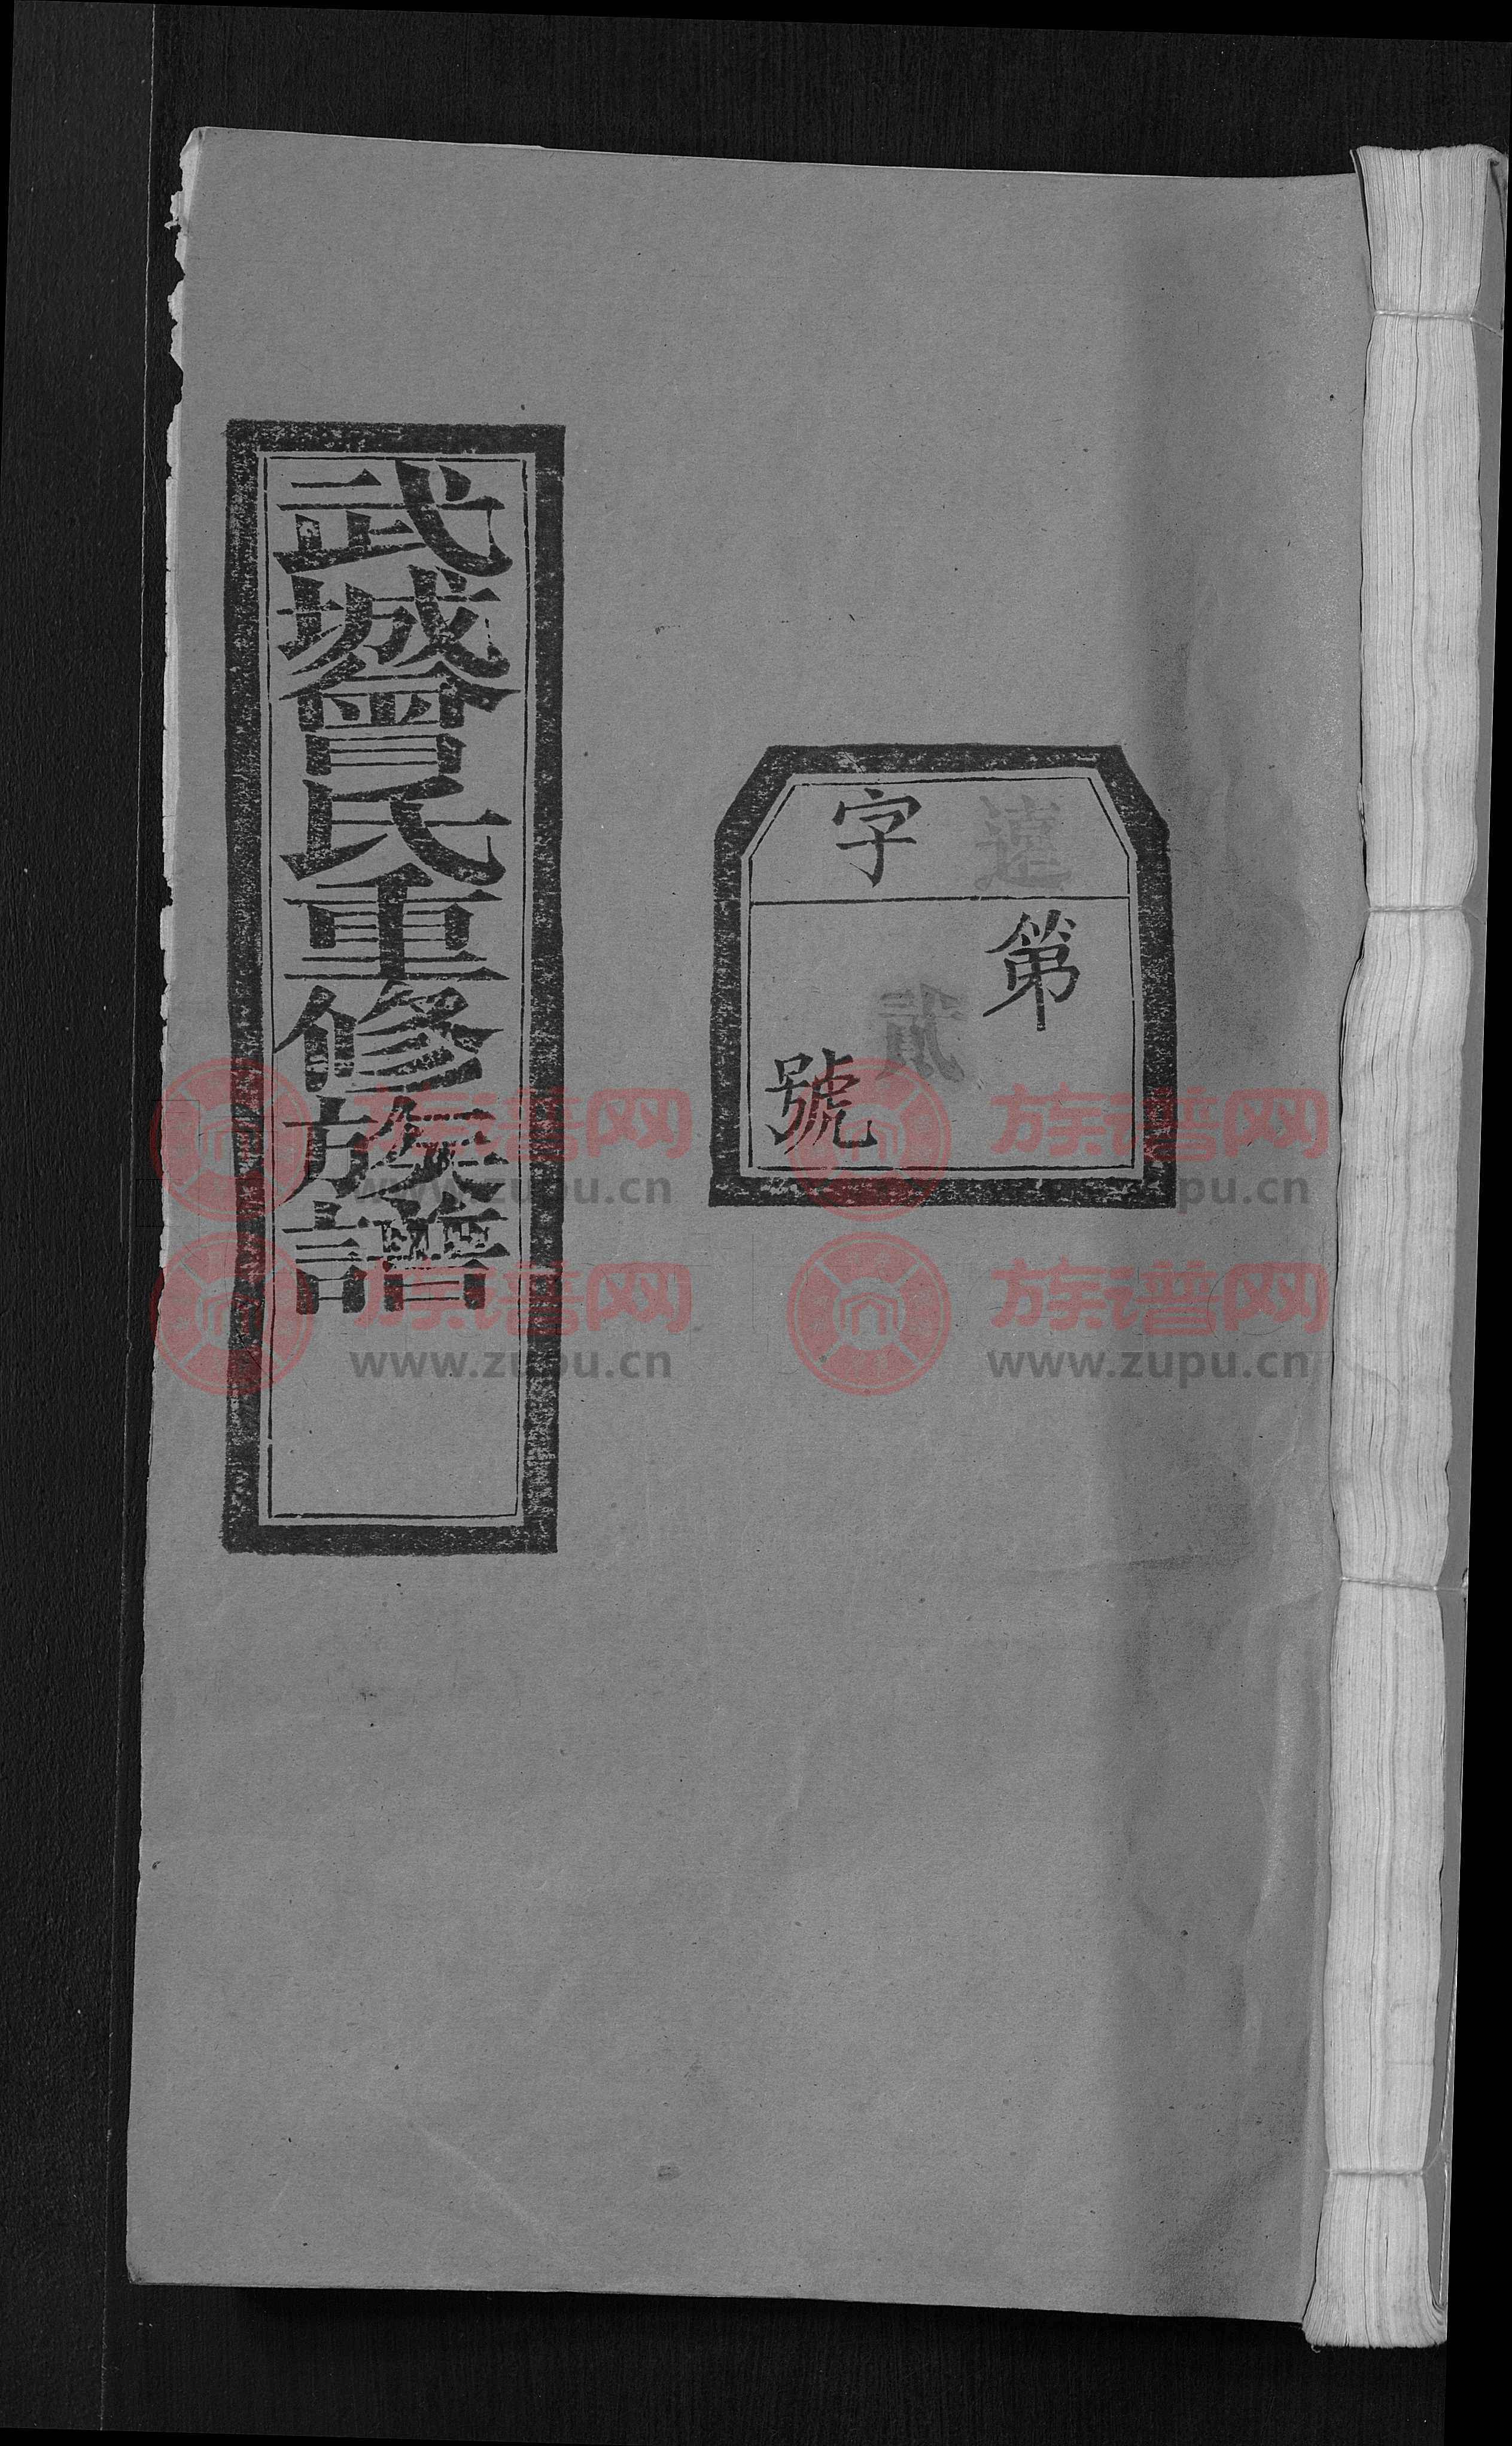 武城曾氏重修族譜
字
第
貳
號
族谱网
www.zupu.cn
族谱网
www.zupu.cn
族谱网
www.zupu.cn
族谱网
www.zupu.cn